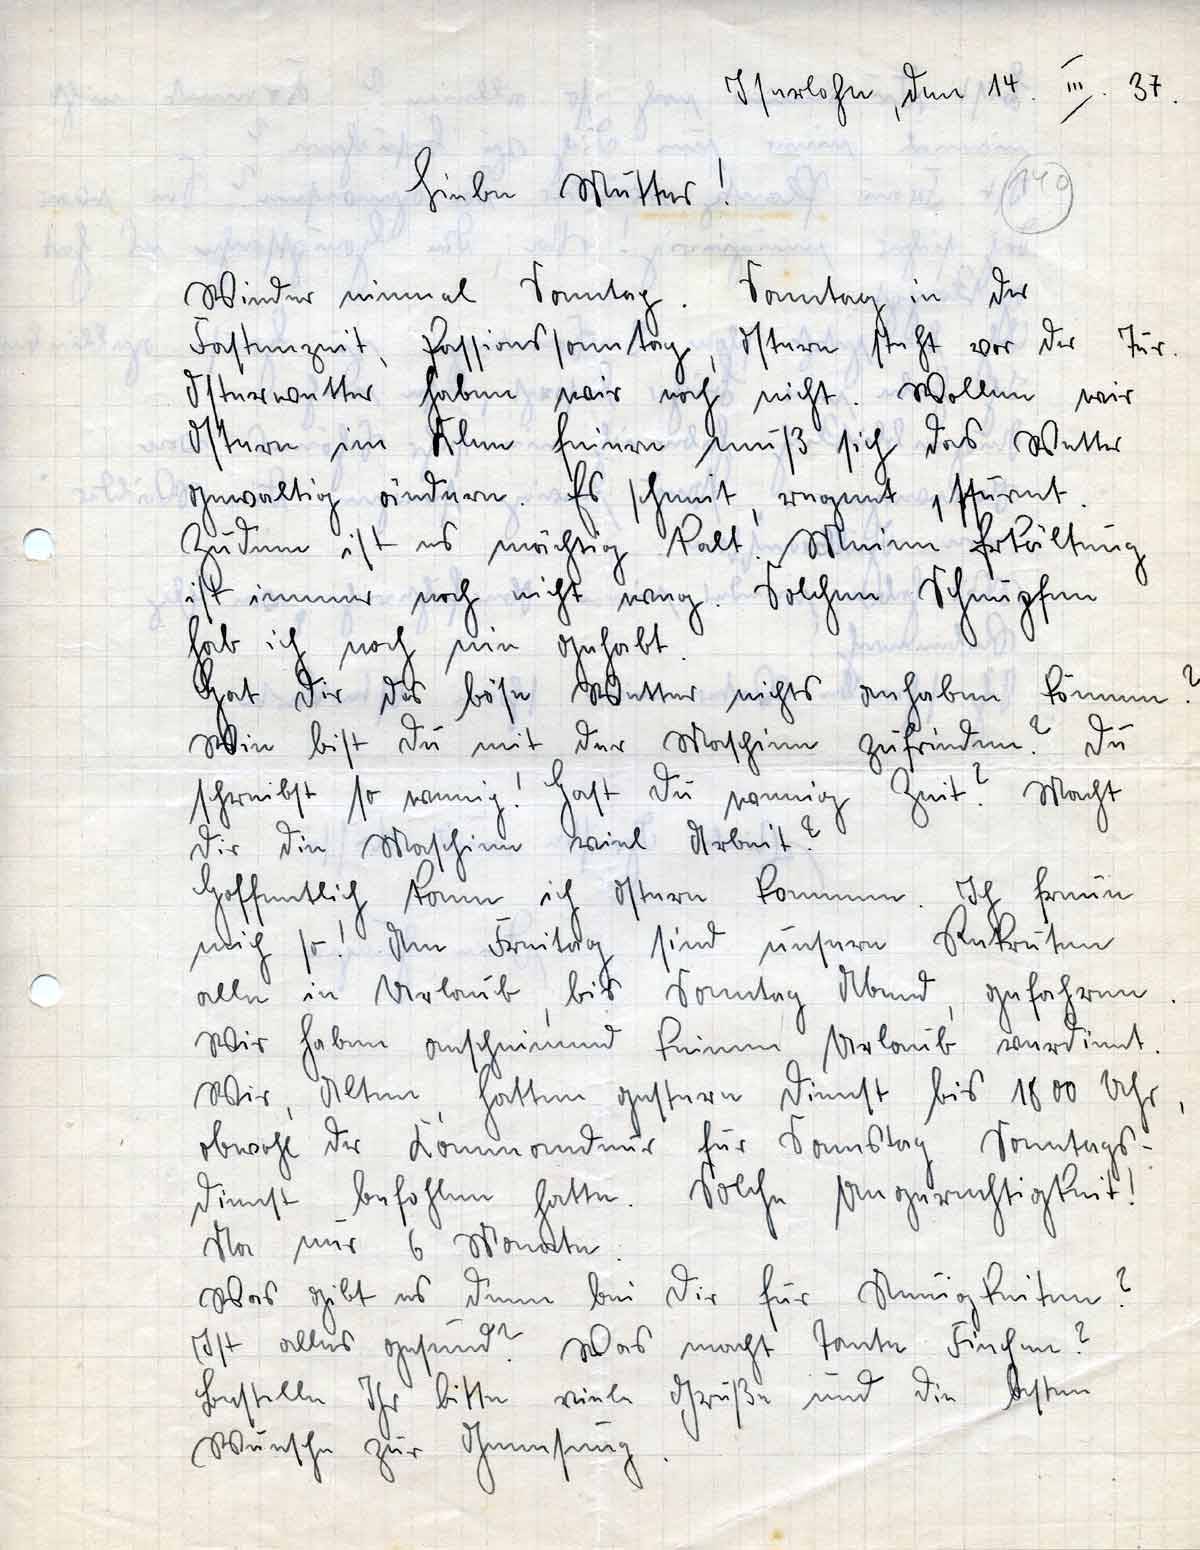 Iserlohn, den 14. III. 37.
140
Liebe Mutter!
Wieder einmal Sonntag. Sonntag in der
Fastenzeit, Passionssonntag, Ostern steht vor der Tür.
Osterwetter haben wir noch nicht. Wollen wir
Ostern im Klee feiern muß sich das Wetter
gewaltig ändern. Es schneit, regnet, stürmt.
Zudem ist es mächtig kalt. Meine Erkältung
ist immer noch nicht weg. Solchen Schnupfen
hab ich noch nie gehabt.
Hat Dir das böse Wetter nichts anhaben können?
Wie bist Du mit der Maschine zufrieden? Du
schreibst so wenig! Hast Du wenig Zeit? Macht
Dir die Maschine viel Arbeit?
Hoffentlich kann ich Ostern kommen. Ich freue
mich so! Am Freitag sind unsere Rekruten
alle in Urlaub, bis Sonntag Abend, gefahren.
Wir haben anscheinend keinen Urlaub verdient.
Wir, Alten, hatten gestern Dienst bis 18 00 Uhr,
obwohl der Kommandeur für Samstag Sonntags-
dienst befohlen hatte. Solche Ungerechtigkeit!
Na nur 6 Monate.
Was gibt es denn bei Dir für Neuigkeiten?
Ist alles gesund? Was macht Tante Finchen?
Bestelle Ihr bitte viele Grüße und die besten
Wünsche zur Genesung.